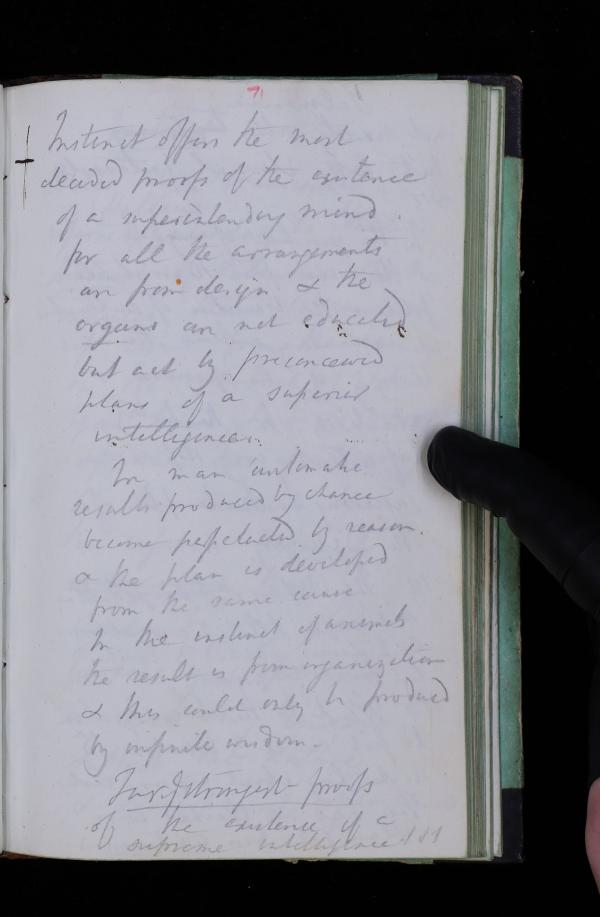 71
Instinct offers the most
decided proofs of the existence
of a superintending mind.
for all the arrangements
are from design & the
organs are not educated
but act by preconceived
plans of a superior
intelligence.
In man automatic
results produced by chance
become perpetuated by reason.
& the plan is developed
from the same cause
In the instinct of animals
the result is from organization
& this could only be produced
by infinite wisdom.
strongest proofs
of the existence of a
supreme intelligence !!!